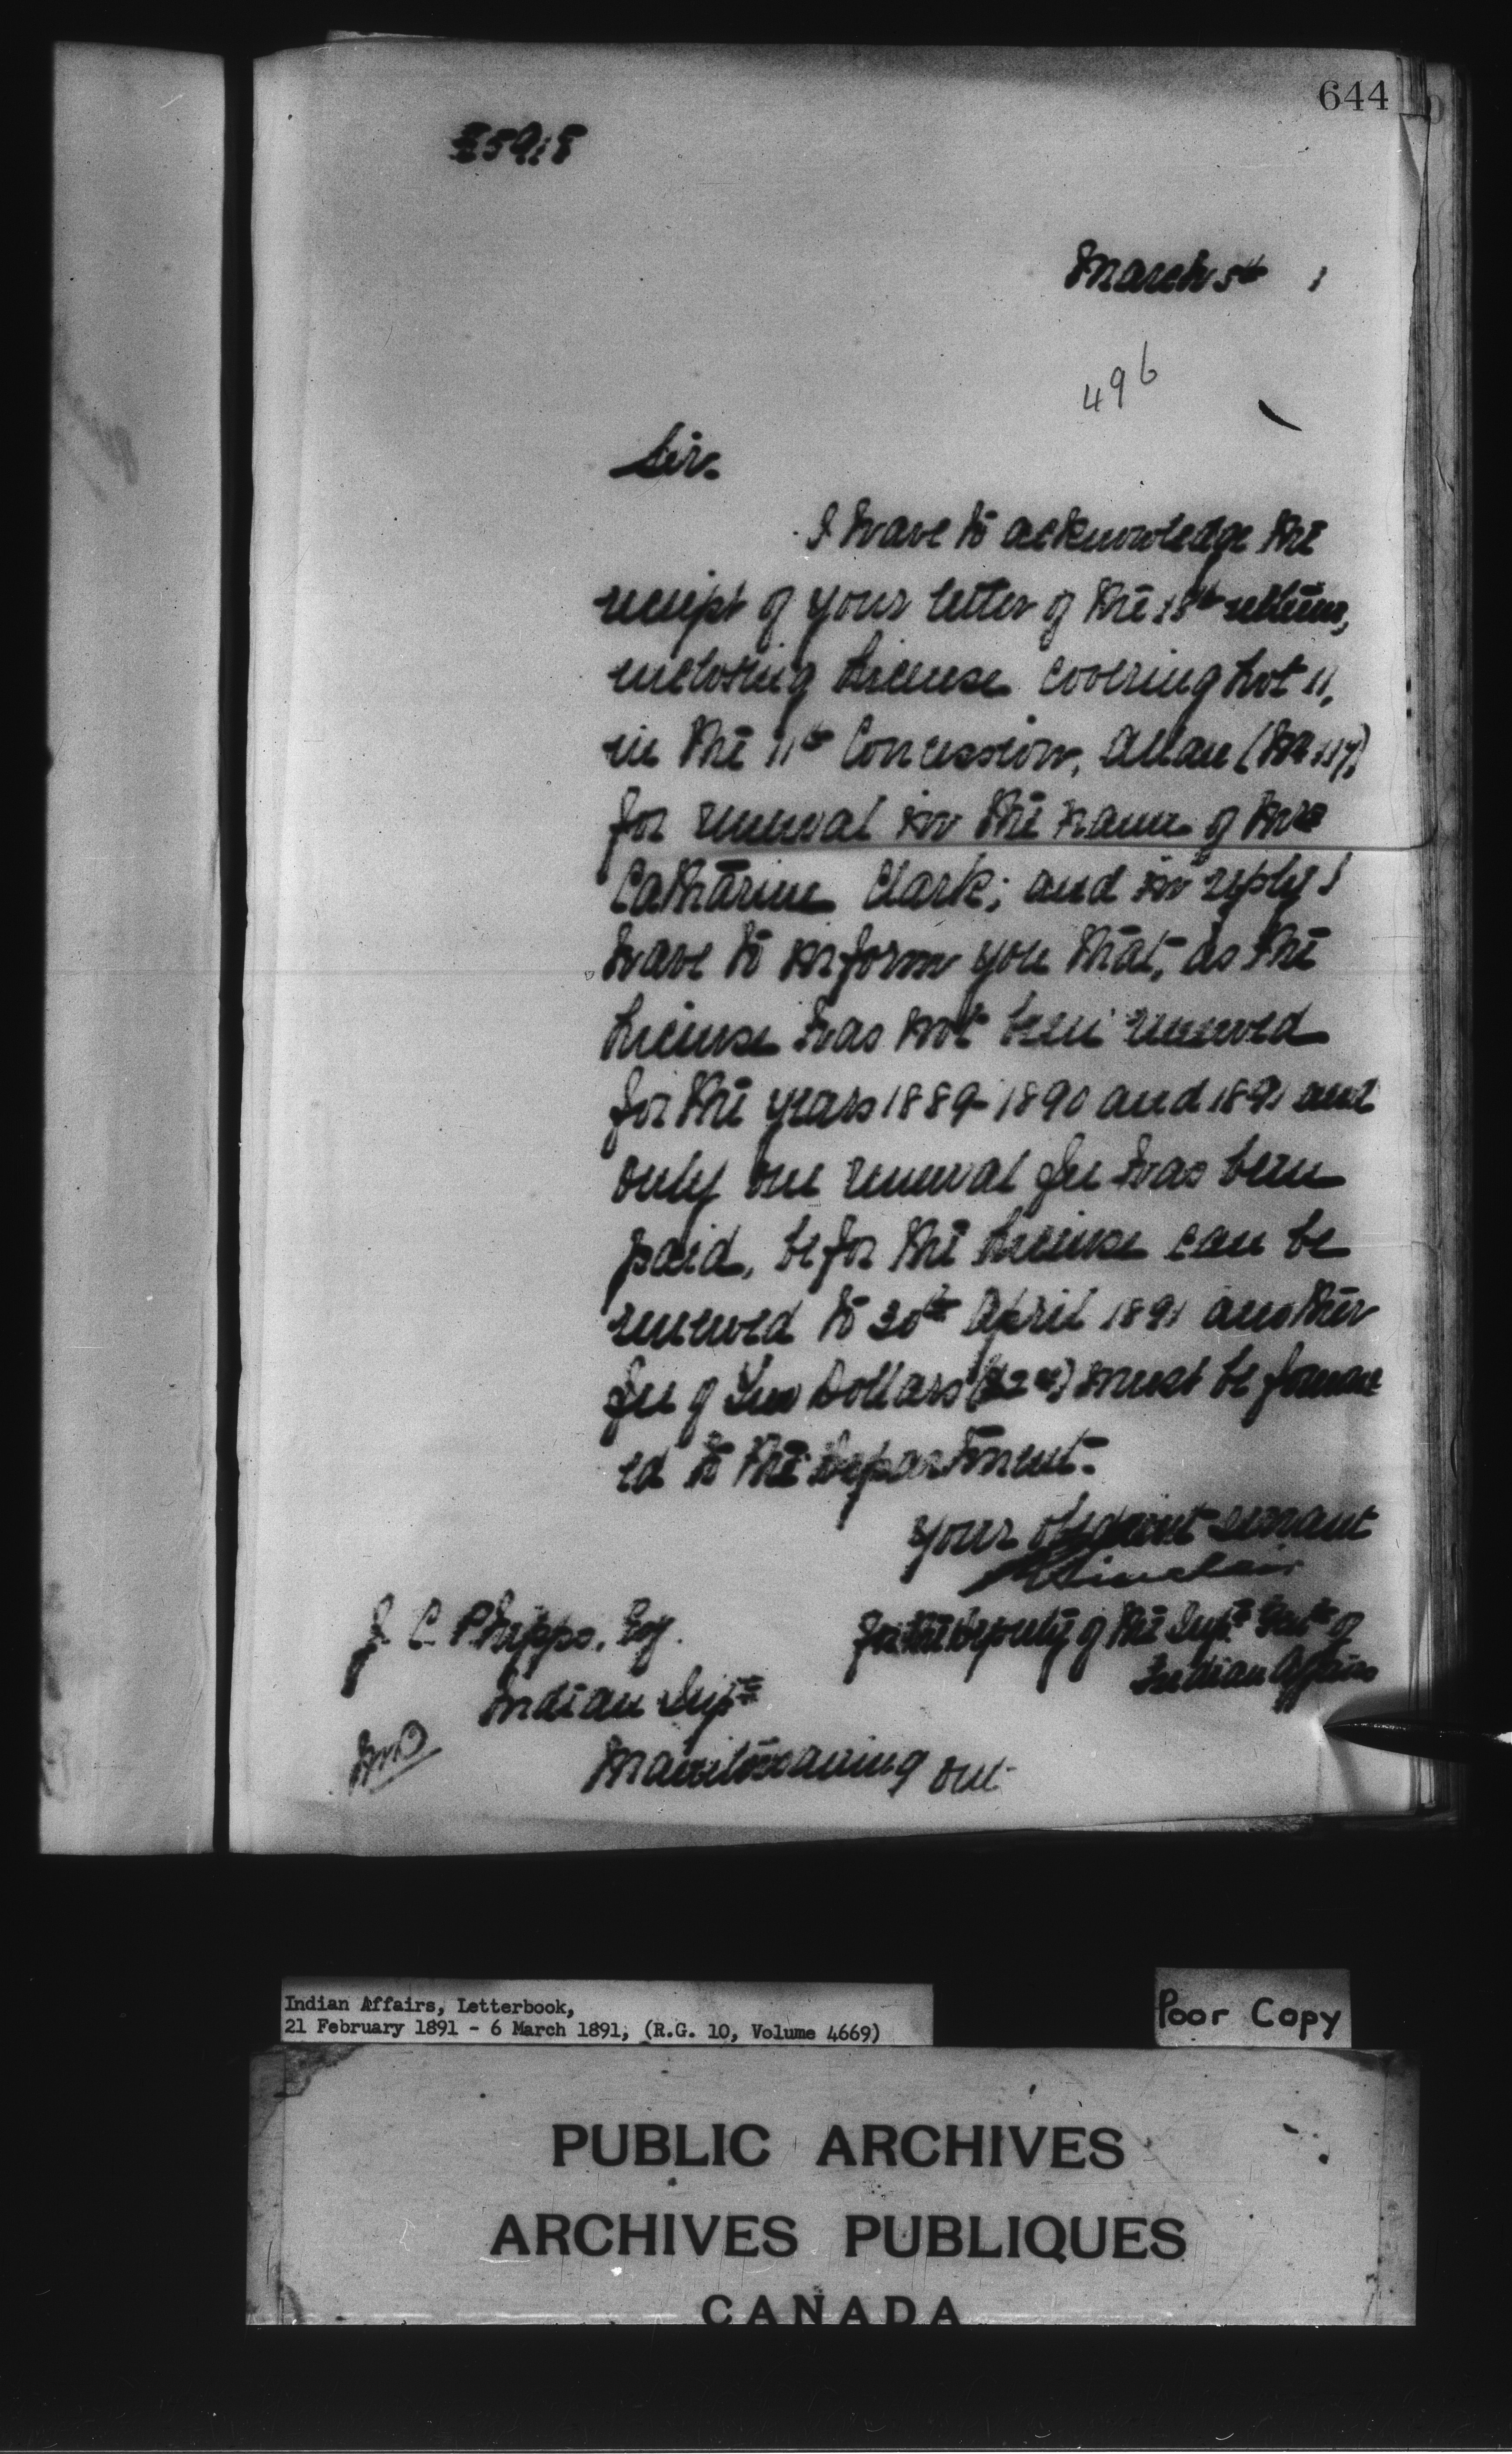 644
March 5th 1
496
Sir.
I have to acknowledge the
receipt of your letter of the 18th ultimo,
enclosing License covering Lot 11,
in the 11th Concession, Allan (No 117)
for renewal in the name of Mrs
Catharine Clark; and in reply I
have to inform you that, as the
License has not been renewed
for the years 1889-1890 and 1891 and
only one renewal fee has been
paid, befor the License can be
renewed to 30th April 1891 another
fee of Two Dollars ($2.00) must be forward
ed to the Department.
Your obedient servant
Sinclair
for the Deputy of the Supt Genl of
Indian Affairs
J. C. Phipps, Esq.
Indian Supt
Manitowaning Ont
Indian Affairs, Letterbook,
21 February 1891 - 6 March 1891, (R.G. 10, Volume 4669)
Poor Copy
PUBLIC ARCHIVES
ARCHIVES PUBLIQUES
CANADA